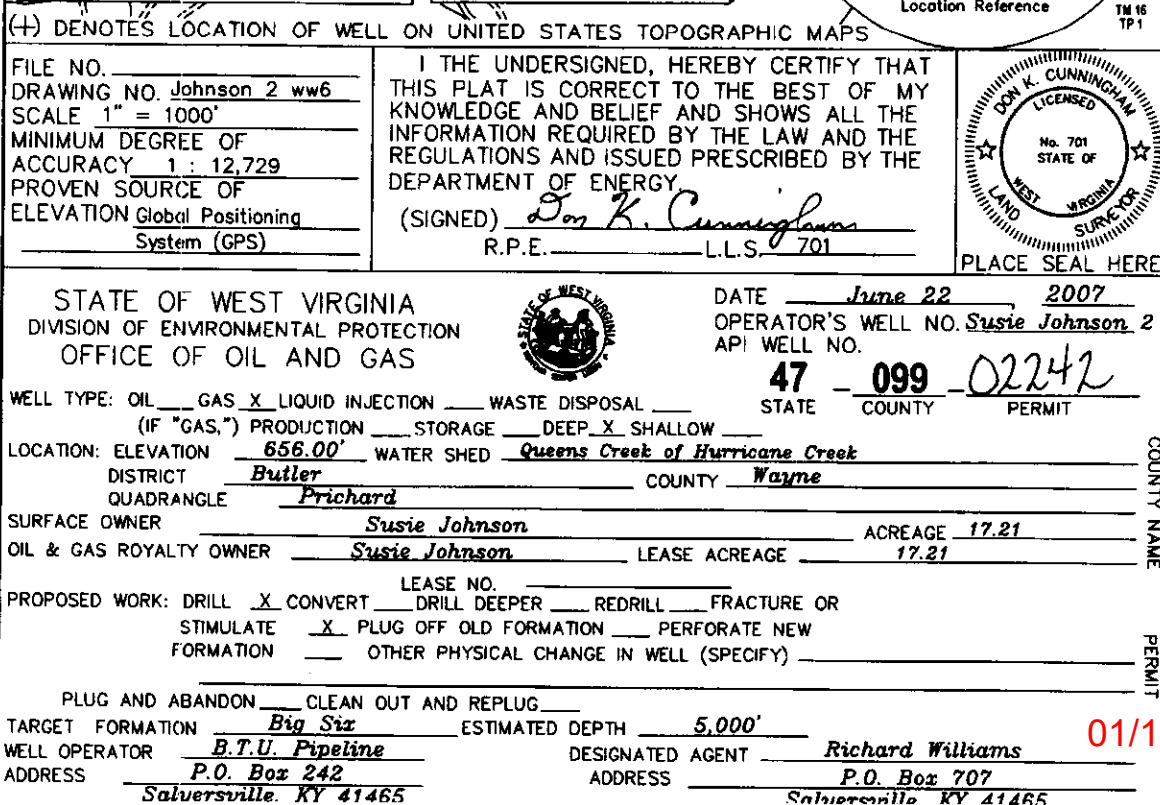 Location Reference
TM 16
TP 1
(+) DENOTES LOCATION OF WELL ON UNITED STATES TOPOGRAPHIC MAPS
FILE NO.
DRAWING NO. Johnson 2 ww6
SCALE 1" = 1000'
MINIMUM DEGREE OF
ACCURACY 1 : 12,729
PROVEN SOURCE OF
ELEVATION Global Positioning
System (GPS)
I THE UNDERSIGNED, HEREBY CERTIFY THAT
THIS PLAT IS CORRECT TO THE BEST OF MY
KNOWLEDGE AND BELIEF AND SHOWS ALL THE
INFORMATION REQUIRED BY THE LAW AND THE
REGULATIONS AND ISSUED PRESCRIBED BY THE
DEPARTMENT OF ENERGY.
(SIGNED) Don K. Cunningham
R.P.E. L.L.S. 701
DON K. CUNNINGHAM
LICENSED
No. 701
STATE OF
WEST VIRGINIA
LAND SURVEYOR
PLACE SEAL HERE
STATE OF WEST VIRGINIA
DIVISION OF ENVIRONMENTAL PROTECTION
OFFICE OF OIL AND GAS
STATE OF WEST VIRGINIA
DATE June 22, 2007
OPERATOR'S WELL NO. Susie Johnson 2
API WELL NO.
47 - 099 - 02242
STATE COUNTY PERMIT
WELL TYPE: OIL GAS X LIQUID INJECTION WASTE DISPOSAL
(IF "GAS,") PRODUCTION STORAGE DEEP X SHALLOW
LOCATION: ELEVATION 656.00' WATER SHED Queens Creek of Hurricane Creek
DISTRICT Butler COUNTY Wayne
QUADRANGLE Prichard
SURFACE OWNER Susie Johnson ACREAGE 17.21
OIL & GAS ROYALTY OWNER Susie Johnson LEASE ACREAGE 17.21
LEASE NO.
PROPOSED WORK: DRILL X CONVERT DRILL DEEPER REDRILL FRACTURE OR
STIMULATE X PLUG OFF OLD FORMATION PERFORATE NEW
FORMATION OTHER PHYSICAL CHANGE IN WELL (SPECIFY)
PLUG AND ABANDON CLEAN OUT AND REPLUG
TARGET FORMATION Big Six ESTIMATED DEPTH 5,000'
WELL OPERATOR B.T.U. Pipeline DESIGNATED AGENT Richard Williams
ADDRESS P.O. Box 242 ADDRESS P.O. Box 707
Salyersville, KY 41465 Salyersville, KY 41465
COUNTY NAME
PERMIT
01/1